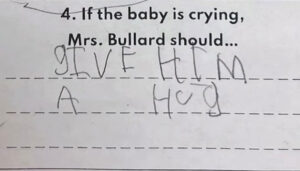 4. If the baby is crying,
Mrs. Bullard should...
gIVE HIM
A HUg